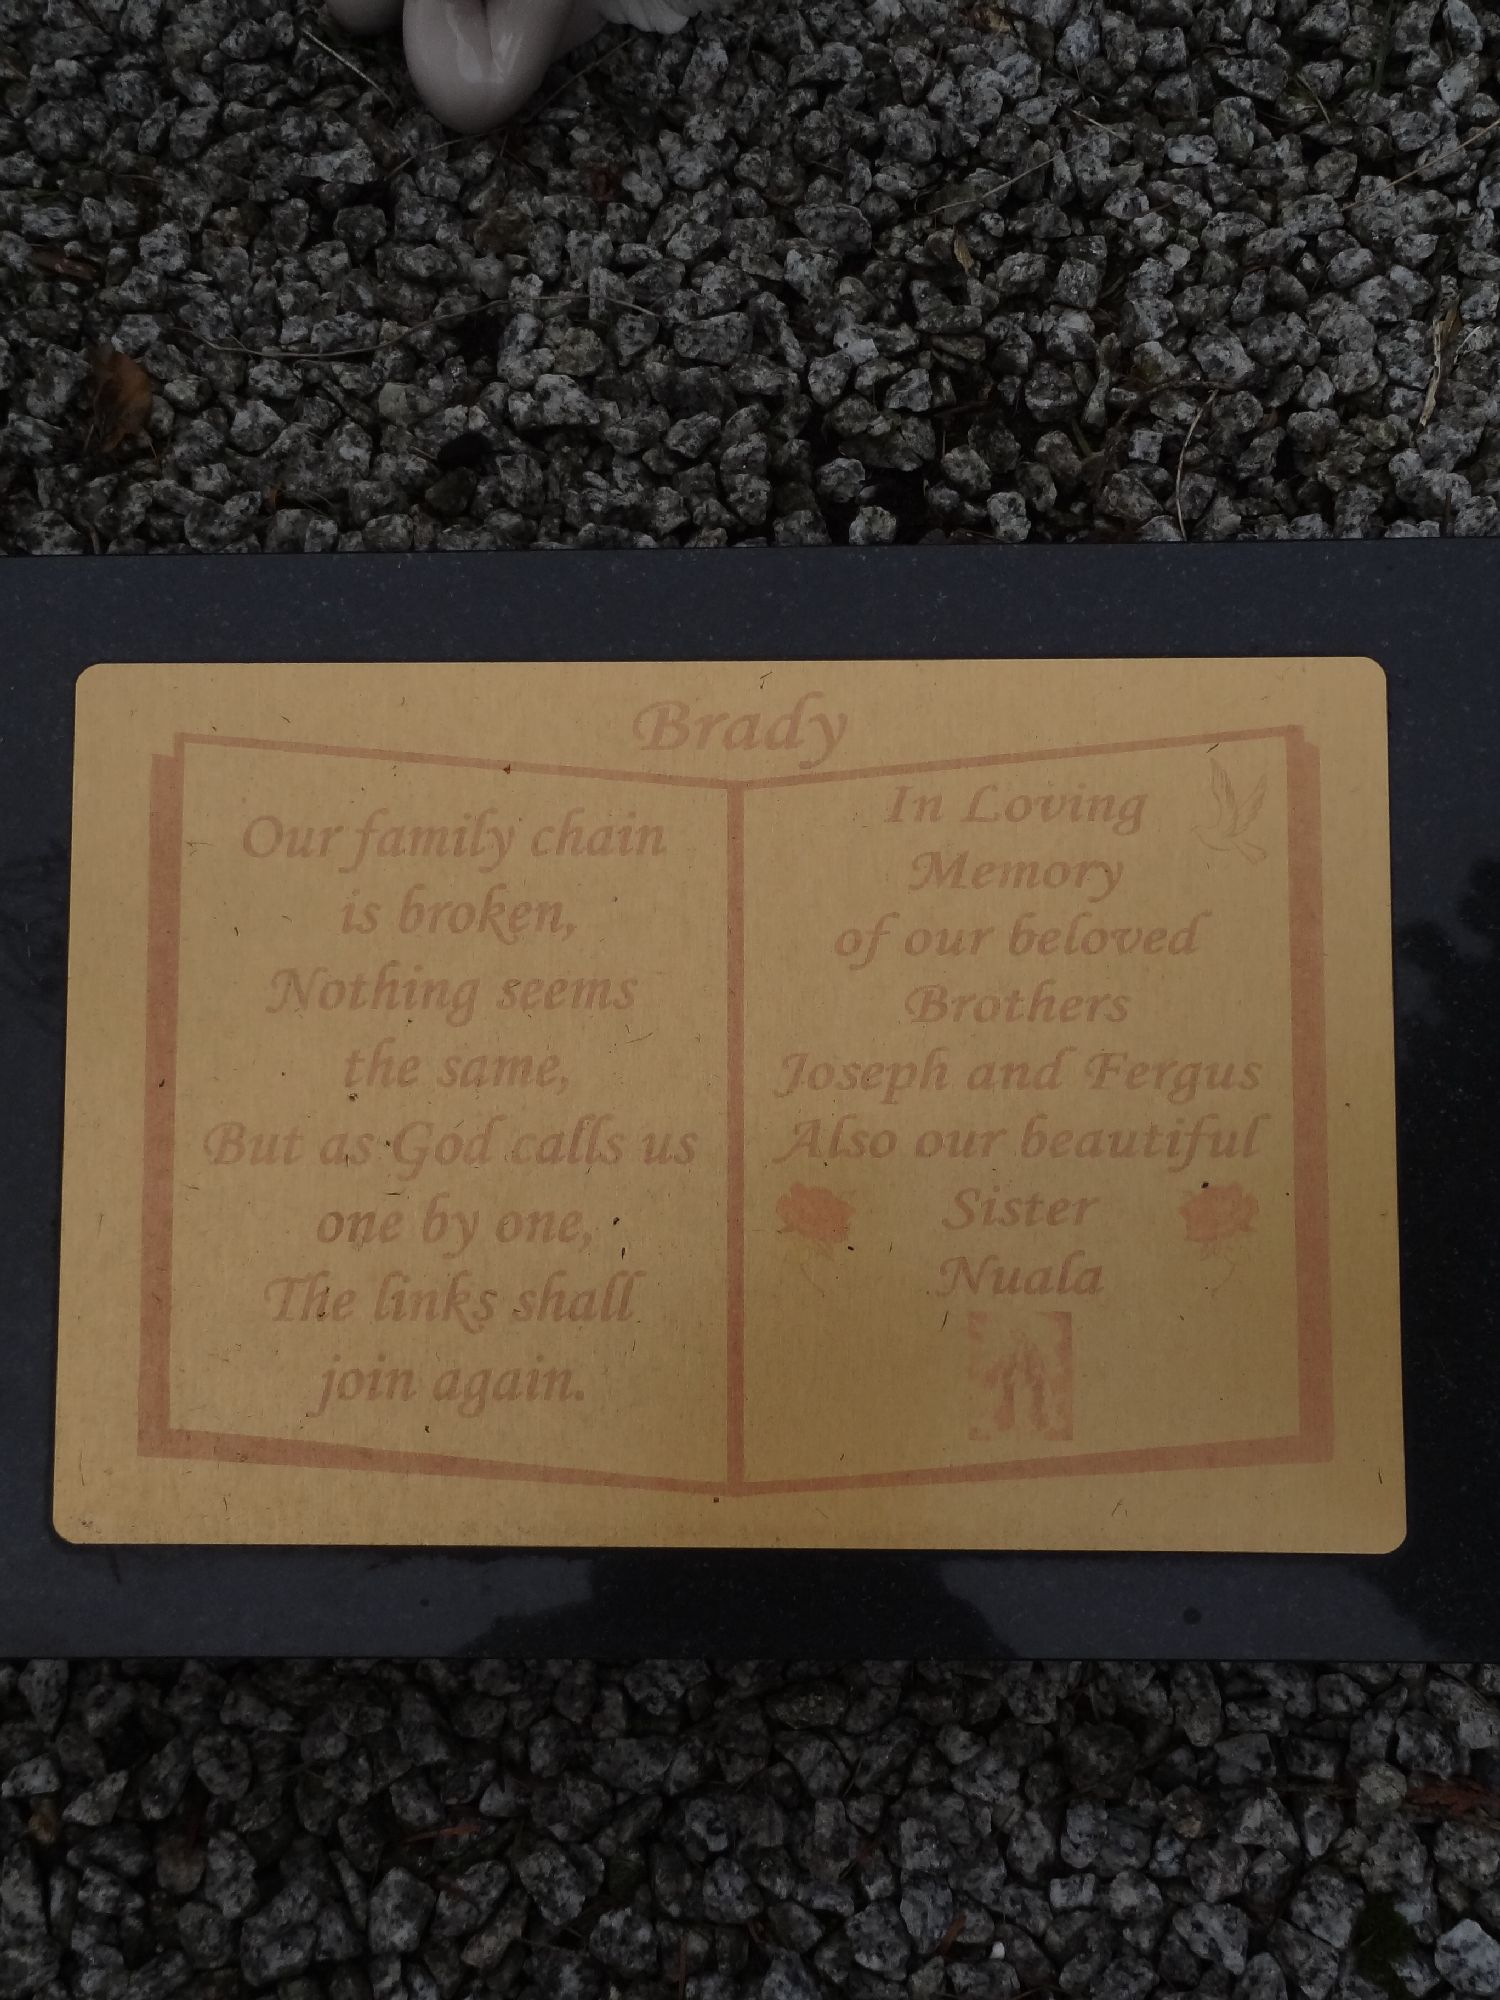 Brady
Our family chain
is broken,
Nothing seems
the same,
But as God calls us
one by one,
The links shall
join again.
In Loving
Memory
of our beloved
Brothers
Joseph and Fergus
Also our beautiful
Sister
Nuala